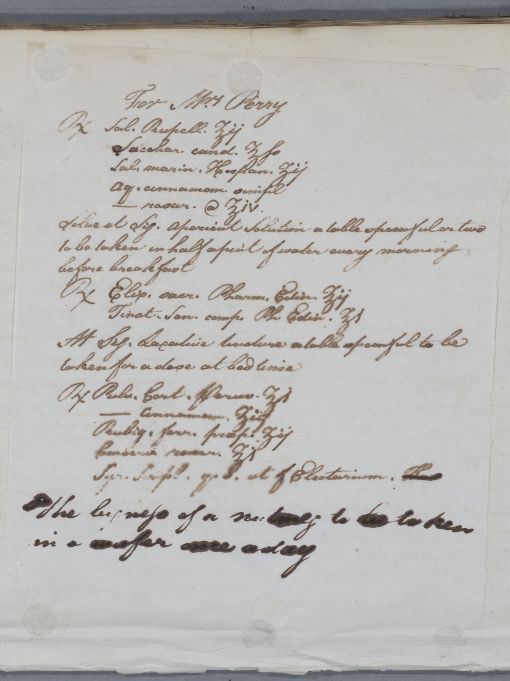 For Mrs Perry
℞ Sal. Rupell. ʒij
Sacchar. cand. ʒſs
Sal. marin. Hispan. ʒij
aq. cinnamom simpl
— rosar. @ ℥iv.
Solve et Sig. aperient Solution a table spoonful or two
to be taken in half a pint of water every morning
before breakfast
℞ Elix. sacr. Pharm. Edin. ʒij
Tinct. Sen. comp. Ph. Edin. ʒi
M Sig. Laxative tincture a table spoonful to be
taken for a dose at bed time
℞ Pulv. Cort. Peruv. ʒi
— cinnamom. ʒij
Rubig. ferr. præp. ʒij
Conserv. rosar. ʒi
Syr. Simpl. q. S. ut f Electarium.
The bigness of a nutmeg to be taken
in a wafer a day